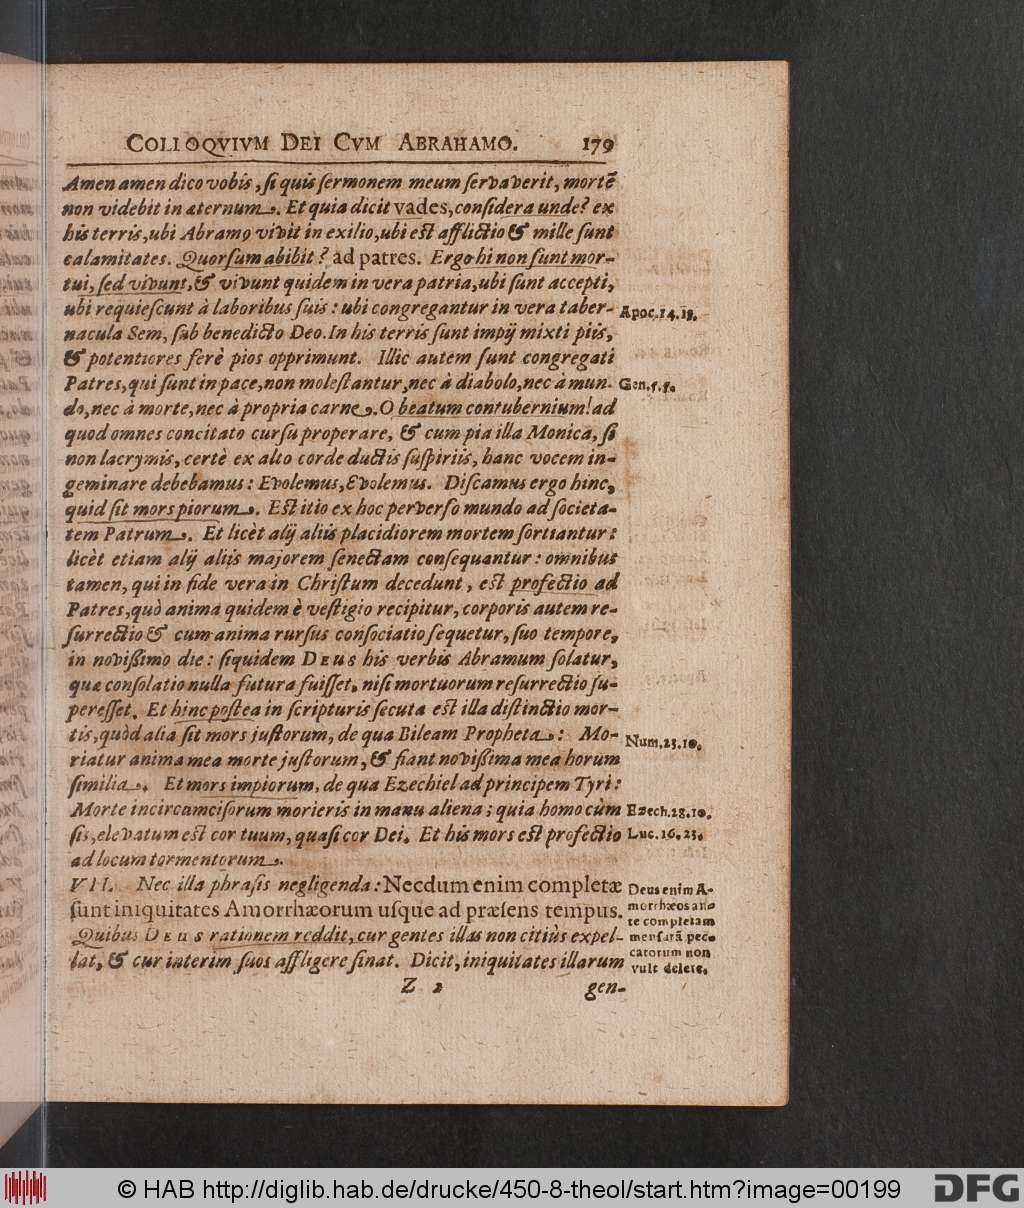 COLLOQVIVM DEI CVM ABRAHAMO. 179
Amen amen dico vobis, ſi quis ſermonem meum ſervaverit, mortē
non videbit in æternum. Et quia dicit vades, conſidera unde? ex
his terris, ubi Abramo vivit in exilio, ubi eſt afflictio & mille ſunt
calamitates. Quorſum abibit? ad patres. Ergo hi non ſunt mor-
tui, ſed vivunt, & vivunt quidem in vera patria, ubi ſunt accepti,
ubi requieſcunt à laboribus ſuis: ubi congregantur in vera taber-
Apoc. 14. 13.
nacula Sem, ſub benedicto Deo. In his terris ſunt impij mixti piis,
& potentiores ferè pios opprimunt. Illic autem ſunt congregati
Patres, qui ſunt in pace, non moleſtantur, nec à diabolo, nec à mun-
Gen. 5. 5.
do, nec à morte, nec à propria carne. O beatum contubernium! ad
quod omnes concitato curſu properare, & cum pia illa Monica, ſi
non lacrymis, certè ex alto corde ductis ſuſpiriis, hanc vocem in-
geminare debebamus: Evolemus, Evolemus. Diſcamus ergo hinc,
quid ſit mors piorum. Eſt itio ex hoc perverſo mundo ad ſocieta-
tem Patrum. Et licèt alij aliis placidiorem mortem ſortiantur:
licèt etiam alij aliis majorem ſenectam conſequantur: omnibus
tamen, qui in fide vera in Chriſtum decedunt, eſt profectio ad
Patres, quò anima quidem è veſtigio recipitur, corporis autem re-
ſurrectio & cum anima rurſus conſociatio ſequetur, ſuo tempore,
in noviſſimo die: ſiquidem DEUS his verbis Abramum ſolatur,
quæ conſolatio nulla futura fuiſſet, niſi mortuorum reſurrectio ſu-
pereſſet. Et hinc poſtea in ſcripturis ſecuta eſt illa diſtinctio mor-
tis, quòd alia ſit mors juſtorum, de qua Bileam Propheta: Mo-
Num. 23. 10.
riatur anima mea morte juſtorum, & fiant noviſſima mea horum
ſimilia. Et mors impiorum, de qua Ezechiel ad principem Tyri:
Morte incircumciſorum morieris in manu aliena; quia homo cùm
Ezech. 28. 10.
ſis, elevatum eſt cor tuum, quaſi cor Dei. Et his mors eſt profectio
Luc. 16. 23.
ad locum tormentorum.
VII. Nec illa phraſis negligenda: Necdum enim completæ
ſunt iniquitates Amorrhæorum uſque ad præſens tempus.
Quibus DEUS rationem reddit, cur gentes illas non citiùs expel-
lat, & cur interim ſuos affligere ſinat. Dicit, iniquitates illarum
Deus enim A-
morrhæos an-
te completam
menſurã pec-
catorum non
vult delere.
Z 2 gen-
© HAB http://diglib.hab.de/drucke/450-8-theol/start.htm?image=00199
DFG